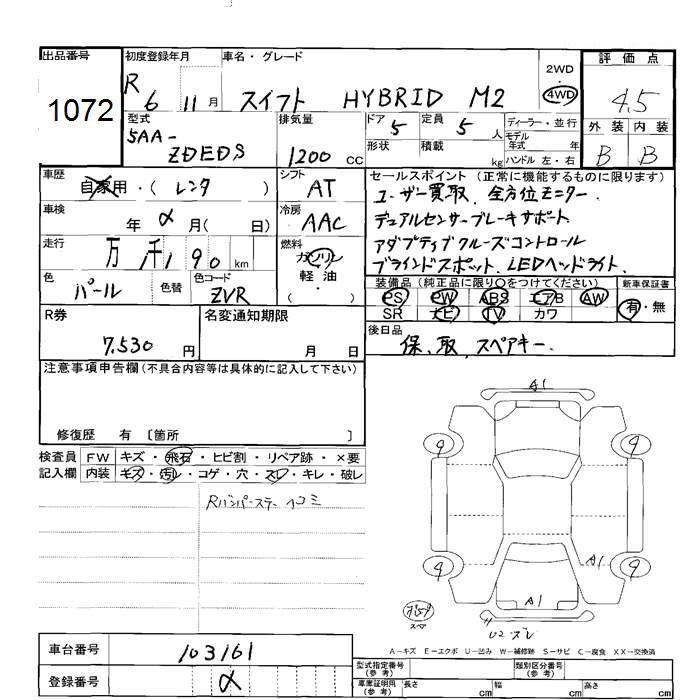 出品番号
1072
初度登録年月
R 6 11月
車名・グレード
スイフト HYBRID M2
2WD
・
4WD
評価点
4.5
外装 内装
B B
型式
5AA-
ZDEDS
排気量
1200 cc
ドア 5
形状
定員 5 人
積載 kg
ディーラー・並行
モデル年式 年
ハンドル 左・右
車歴
自家用・(レンタ)
シフト
AT
車検
年 月( 日)
冷房
AAC
走行
万 千 190 km
燃料
ガソリン
軽油
( ・ )
色
パール
色替
色コード
ZVR
セールスポイント (正常に機能するものに限ります)
ユーザー買取、全方位モニター、
デュアルセンサーブレーキサポート
アダプティブクルーズコントロール
ブラインドスポット、LEDヘッドライト、
装備品(純正品に限り〇をつけてください)
PS PW ABS エアB AW
SR ナビ TV カワ
新車保証書
有・無
R券
7,530 円
名変通知期限
月 日
後日品
保、取、スペアキー、
注意事項申告欄(不具合内容等は具体的に記入して下さい)
修復歴 有 〔箇所 〕
検査員 FW キズ・飛石・ヒビ割・リペア跡・×要
記入欄 内装 キズ・汚レ・コゲ・穴・スレ・キレ・破レ
Rバンパーステー ヘコミ
A1
9 9
A1
9 9
A1
スペア
U2 ズレ
A-キズ E-エクボ U-凹み W-補修跡 S-サビ C-腐食 XX-交換済
車台番号 103161
登録番号
型式指定番号(参考)
類別区分番号(参考)
車庫証明用(参考) 長さ cm 幅 cm 高さ cm